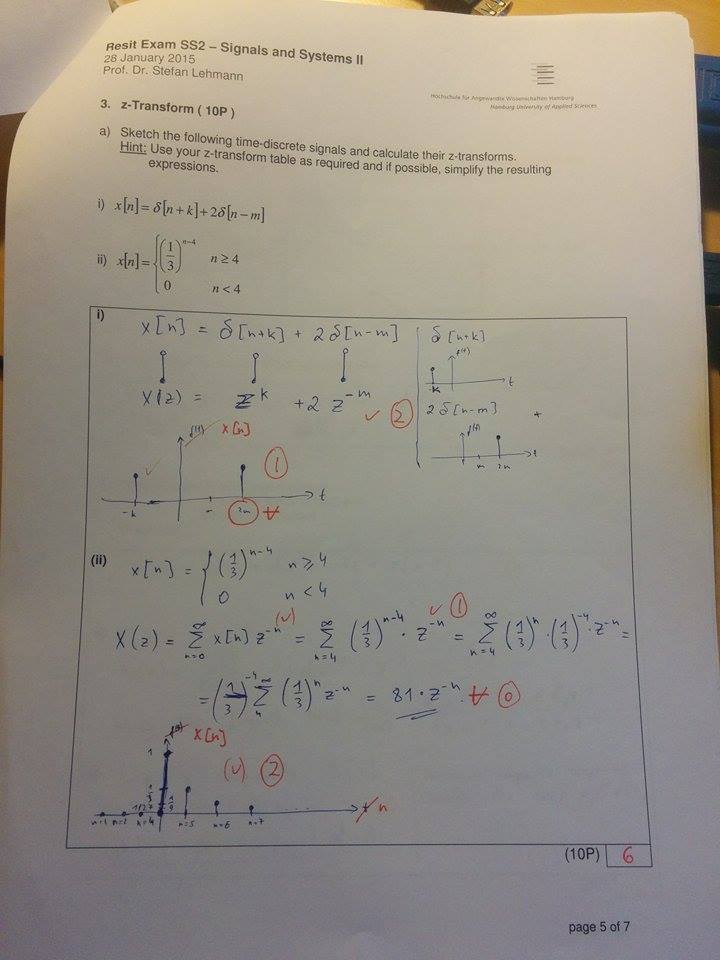 Resit Exam SS2 – Signals and Systems II
28 January 2015
Prof. Dr. Stefan Lehmann
Hochschule für Angewandte Wissenschaften Hamburg
Hamburg University of Applied Sciences
3. z-Transform ( 10P )
a) Sketch the following time-discrete signals and calculate their z-transforms.
Hint: Use your z-transform table as required and if possible, simplify the resulting
expressions.
i) x[n] = δ[n+k]+2δ[n−m]
ii) x[n] = { (1/3)^(n−4) n ≥ 4
0 n < 4
i)
x[n] = δ[n+k] + 2δ[n−m]
X(z) = z^k + 2 z^−m ✓ 2
δ[n+k]
f(t)
-k t
2δ[n−m] +
f(t)
m 2m t
f(t) x[n]
✓ 1
-k m 2m t
(ii)
x[n] = { (1/3)^(n−4) n ≥ 4
0 n < 4
(✓) ✓ 1
X(z) = ∑_(n=0)^∞ x[n] z^−n = ∑_(n=4)^∞ (1/3)^(n−4) · z^−n = ∑_(n=4)^∞ (1/3)^n · (1/3)^−4 · z^−n =
= (1/3)^−4 ∑_4^∞ (1/3)^n z^−n = 81 · z^−n. 0
x[n]
1
(✓) 2
1/3
1/27 1/9
n=1 n=2 n=4 n=5 n=6 n=7 t n
(10P) 6
page 5 of 7